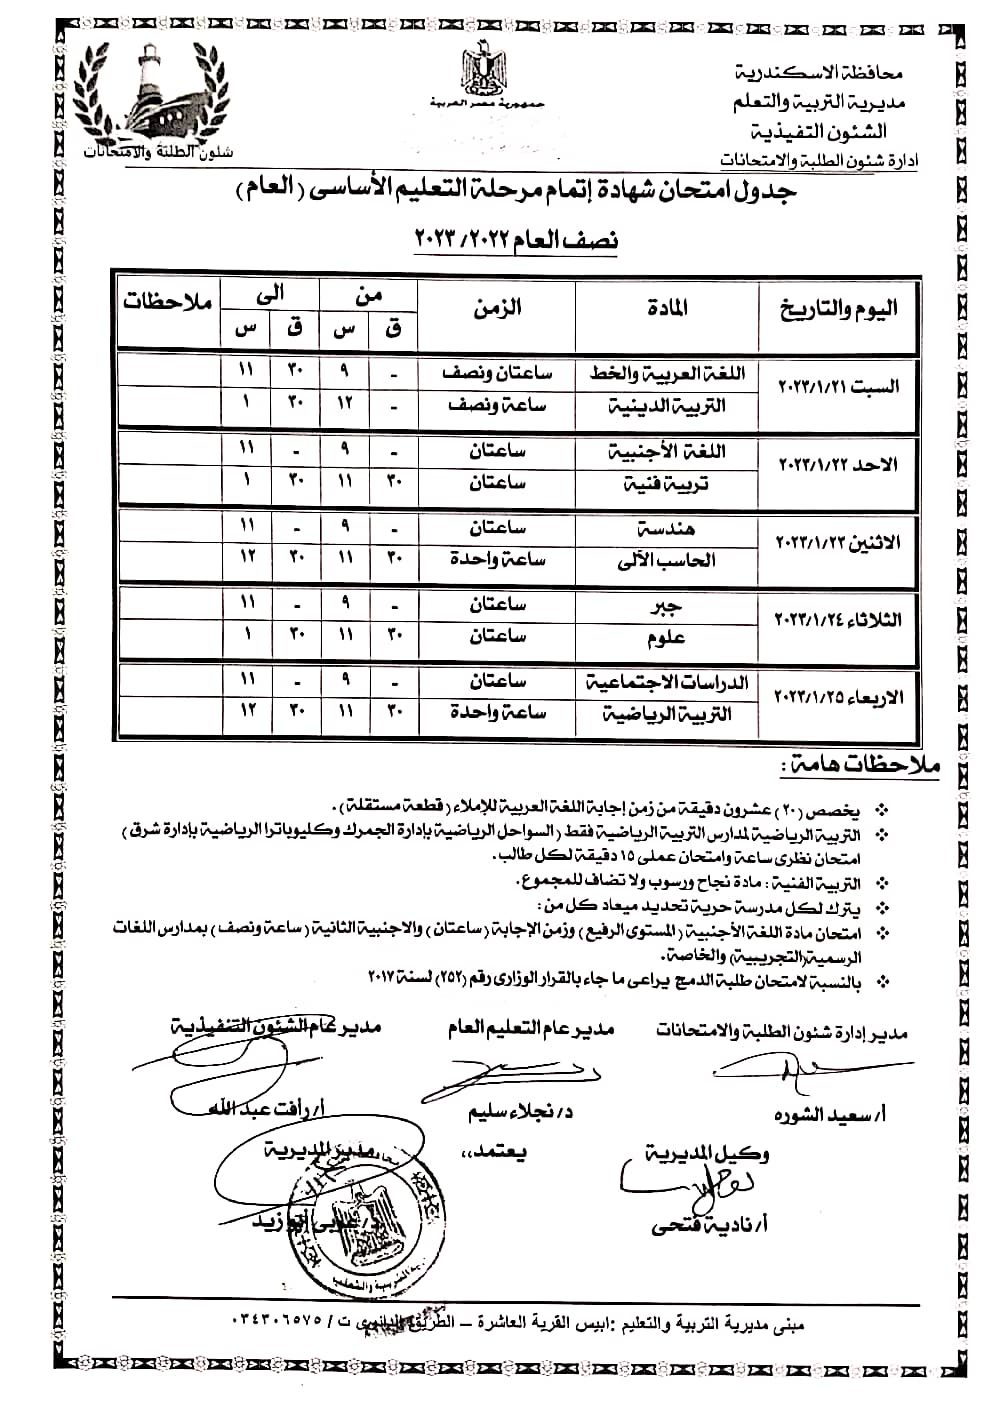 محافظة الاسكندرية
مديرية التربية والتعلم
الشئون التفيذية
ادارة شئون الطلبة والامتحانات
جمهورية مصر العربية
شئون الطلبة والامتحانات
جدول امتحان شهادة إتمام مرحلة التعليم الأساسى (العام)
نصف العام ٢٠٢٢/ ٢٠٢٣
اليوم والتاريخ المادة الزمن من الى ملاحظات
ق س ق س
السبت ٢٠٢٣/١/٢١ اللغة العربية والخط ساعتان ونصف - ٩ ٣٠ ١١
التربية الدينية ساعة ونصف - ١٢ ٣٠ ١
الاحد ٢٠٢٣/١/٢٢ اللغة الأجنبية ساعتان - ٩ - ١١
تربية فنية ساعتان ٣٠ ١١ ٣٠ ١
الاثنين ٢٠٢٣/١/٢٣ هندسة ساعتان - ٩ - ١١
الحاسب الألى ساعة واحدة ٣٠ ١١ ٣٠ ١٢
الثلاثاء ٢٠٢٣/١/٢٤ جبر ساعتان - ٩ - ١١
علوم ساعتان ٣٠ ١١ ٣٠ ١
الاربعاء ٢٠٢٣/١/٢٥ الدراسات الاجتماعية ساعتان - ٩ - ١١
التربية الرياضية ساعة واحدة ٣٠ ١١ ٣٠ ١٢
ملاحظات هامة :
❖ يخصص (٢٠) عشرون دقيقة من زمن إجابة اللغة العربية للإملاء (قطعة مستقلة).
❖ التربية الرياضية لمدارس التربية الرياضية فقط (السواحل الرياضية بإدارة الجمرك وكليوباترا الرياضية بإدارة شرق)
امتحان نظرى ساعة وامتحان عملى ١٥ دقيقة لكل طالب.
❖ التربية الفنية : مادة نجاح ورسوب ولا تضاف للمجموع.
❖ يترك لكل مدرسة حرية تحديد ميعاد كل من :
❖ امتحان مادة اللغة الأجنبية (المستوى الرفيع) وزمن الإجابة (ساعتان) والاجنبية الثانية (ساعة ونصف) بمدارس اللغات
الرسمية (التجريبية) والخاصة.
❖ بالنسبة لامتحان طلبة الدمج يراعى ما جاء بالقرار الوزارى رقم (٢٥٢) لسنة ٢٠١٧
مدير إدارة شئون الطلبة والامتحانات مدير عام التعليم العام مدير عام الشئون التنفيذية
أ/ سعيد الشوره د/ نجلاء سليم أ/ رأفت عبد الله
وكيل المديرية يعتمد،، مدير المديرية
أ/ نادية فتحى د/ عربى ابو زيد
مبنى مديرية التربية والتعليم :ابيس القرية العاشرة – الطريق الدائرى ت / ٠٣٤٣٠٦٥٧٥